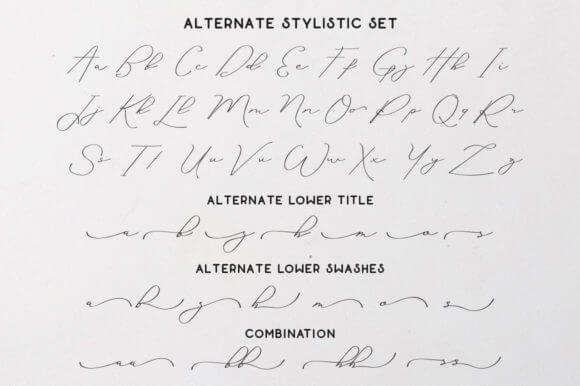 ALTERNATE STYLISTIC SET
Aa Bb Cc Dd Ee Ff Gg Hh Ii
Jj Kk Ll Mm Nn Oo Pp Qq Rr
Ss Tt Uu Vv Ww Xx Yy Zz
ALTERNATE LOWER TITLE
a b g h m o s
ALTERNATE LOWER SWASHES
a b g h m o s
COMBINATION
aa bb hh ss